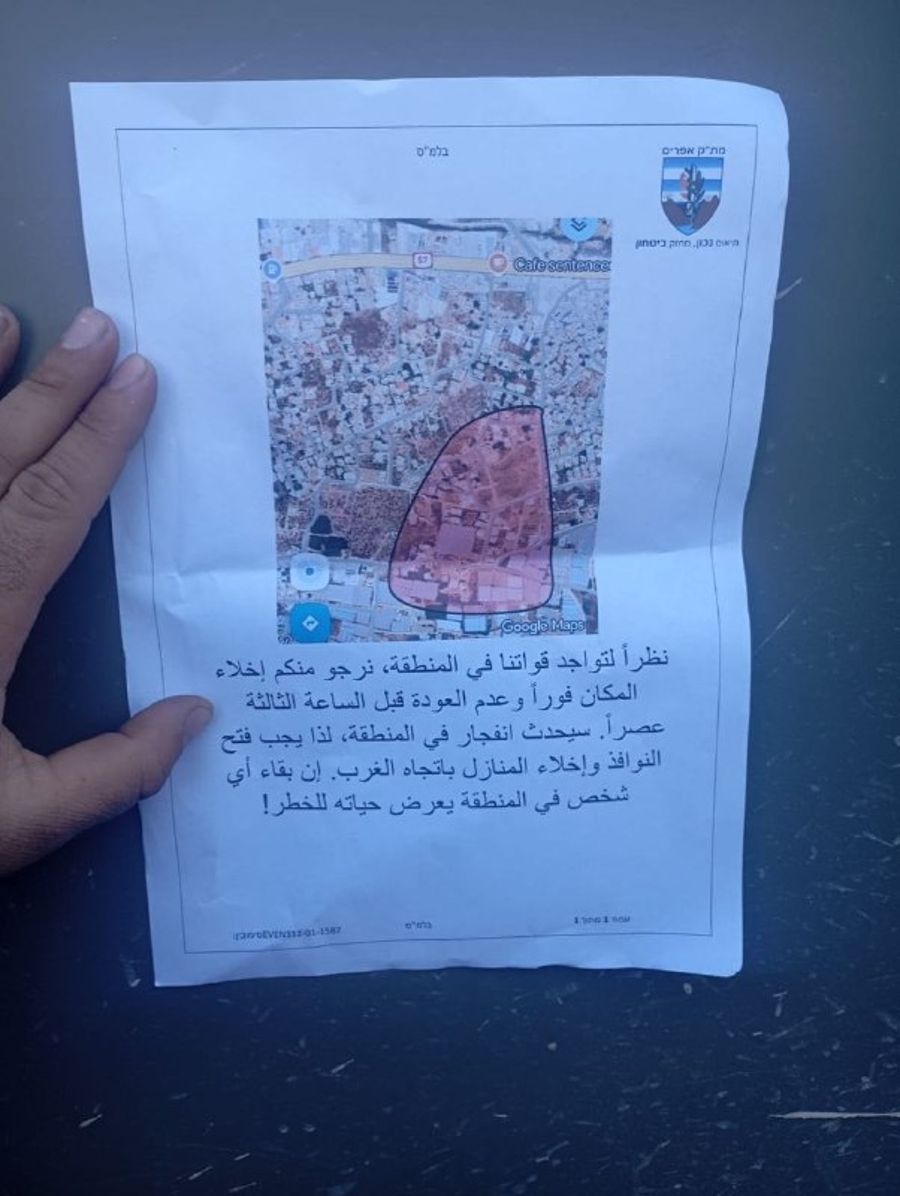 בלמ"ס
מת"ק אפרים
תיאום נכון, מחזק ביטחון
57
Cafe sentence
Google Maps
نظراً لتواجد قواتنا في المنطقة، نرجو منكم إخلاء
المكان فوراً وعدم العودة قبل الساعة الثالثة
عصراً. سيحدث انفجار في المنطقة، لذا يجب فتح
النوافذ وإخلاء المنازل باتجاه الغرب. إن بقاء أي
شخص في المنطقة يعرض حياته للخطر!
עמוד 1 מתוך 1
בלמ"ס